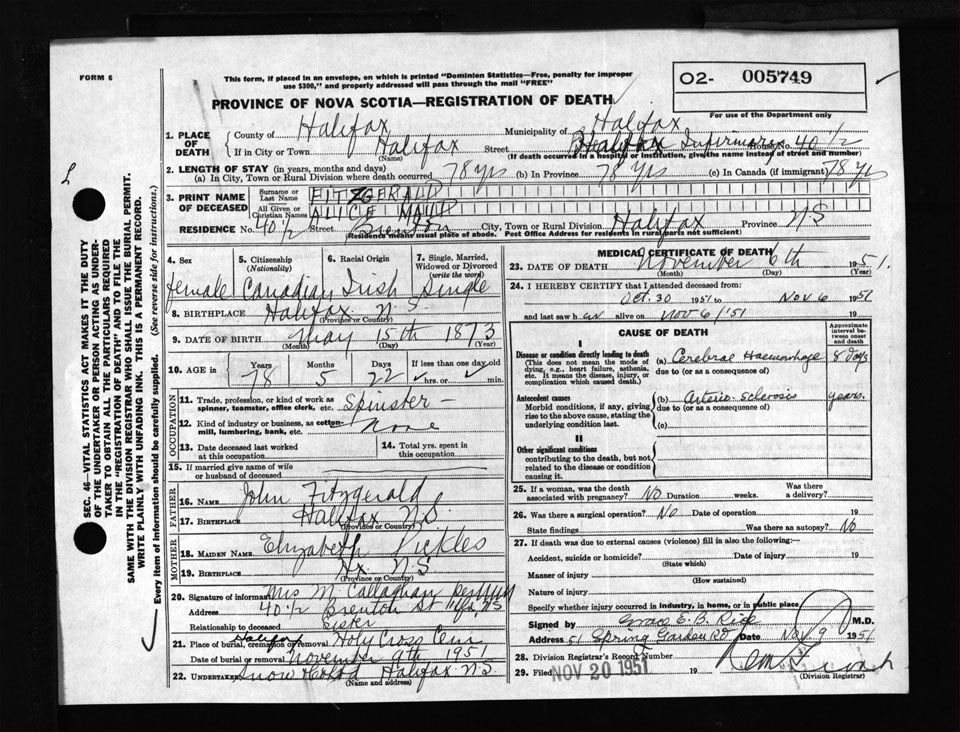 FORM 6
This form, if placed in an envelope, on which is printed "Dominion Statistics—Free, penalty for improper
use $300," and properly addressed will pass through the mail "FREE"
O2- 005749
For use of the Department only
PROVINCE OF NOVA SCOTIA—REGISTRATION OF DEATH
1. PLACE OF DEATH
County of Halifax Municipality of Halifax
If in City or Town Halifax (Name) Street Halifax Infirmary House No. 40 1/2
(If death occurred in a hospital or institution, give the name instead of street and number)
2. LENGTH OF STAY (in years, months and days)
(a) In City, Town or Rural Division where death occurred 78 yrs (b) In Province 78 Yrs (c) In Canada (if immigrant) 78 Yrs
3. PRINT NAME OF DECEASED
Surname or Last Name FITZGERALD
All Given or Christian Names ALICE MAUD
RESIDENCE No. 40 1/2 Street Brenton City, Town or Rural Division Halifax Province N-S
(Residence means usual place of abode. Post Office Address for residents in rural parts not sufficient)
4. Sex
female
5. Citizenship (Nationality)
Canadian
6. Racial Origin
Irish
7. Single, Married, Widowed or Divorced (write the word)
Single
8. BIRTHPLACE Halifax N.S
(Province or Country)
9. DATE OF BIRTH May 15th 1873
(Month) (Day) (Year)
10. AGE in Years 78 Months 5 Days 22 If less than one day old hrs. or min.
OCCUPATION
11. Trade, profession, or kind of work as spinner, teamster, office clerk, etc. Spinster —
12. Kind of industry or business, as cotton-mill, lumbering, bank, etc. None
13. Date deceased last worked at this occupation
14. Total yrs. spent in this occupation
15. If married give name of wife or husband of deceased
FATHER
16. NAME John Fitzgerald
17. BIRTHPLACE Halifax N.S.
(Province or Country)
MOTHER
18. MAIDEN NAME Elizabeth Pickles
19. BIRTHPLACE Hx. N.S
(Province or Country)
20. Signature of informant Mrs M. Callaghan
Address 40 1/2 Brenton St
Relationship to deceased Sister
21. Place of burial, cremation or removal Halifax Holy Cross Cem
Date of burial or removal November 9th 1951
22. Undertaker Snow Halifax N.S
(Name and address)
MEDICAL CERTIFICATE OF DEATH
23. DATE OF DEATH November 6th 1951.
(Month) (Day) (Year)
24. I HEREBY CERTIFY that I attended deceased from:
Oct. 30 1951 to Nov 6 1951
and last saw h er alive on Nov 6/'51 19
CAUSE OF DEATH
Approximate interval between onset and death
I
Disease or condition directly leading to death
(This does not mean the mode of dying, e.g., heart failure, asthenia, etc. It means the disease, injury, or complication which caused death.)
(a) Cerebral Haemorrhage 8 days
due to (or as a consequence of)
Antecedent causes
Morbid conditions, if any, giving rise to the above cause, stating the underlying condition last
(b) Arterio-sclerosis years.
due to (or as a consequence of)
(c)
II
Other significant conditions
contributing to the death, but not related to the disease or condition causing it.
25. If a woman, was the death associated with pregnancy? No Duration weeks. Was there a delivery?
26. Was there a surgical operation? No Date of operation 19
State findings Was there an autopsy? No
27. If death was due to external causes (violence) fill in also the following:—
Accident, suicide or homicide? Date of injury 19
(State which)
Manner of injury
(How sustained)
Nature of injury
Specify whether injury occurred in industry, in home, or in public place
Signed by Grace E. B. Rice M.D.
Address 51 Spring Garden Rd Date Nov 9 1951
28. Division Registrar's Record Number
29. Filed NOV 20 1951 19
(Division Registrar)
SEC. 46—VITAL STATISTICS ACT MAKES IT THE DUTY
OF THE UNDERTAKER OR PERSON ACTING AS UNDER-
TAKER TO OBTAIN ALL THE PARTICULARS REQUIRED
IN THE "REGISTRATION OF DEATH" AND TO FILE THE
SAME WITH THE DIVISION REGISTRAR WHO SHALL ISSUE THE BURIAL PERMIT.
WRITE PLAINLY WITH UNFADING INK. THIS IS A PERMANENT RECORD.
Every item of information should be carefully supplied. (See reverse side for instructions.)